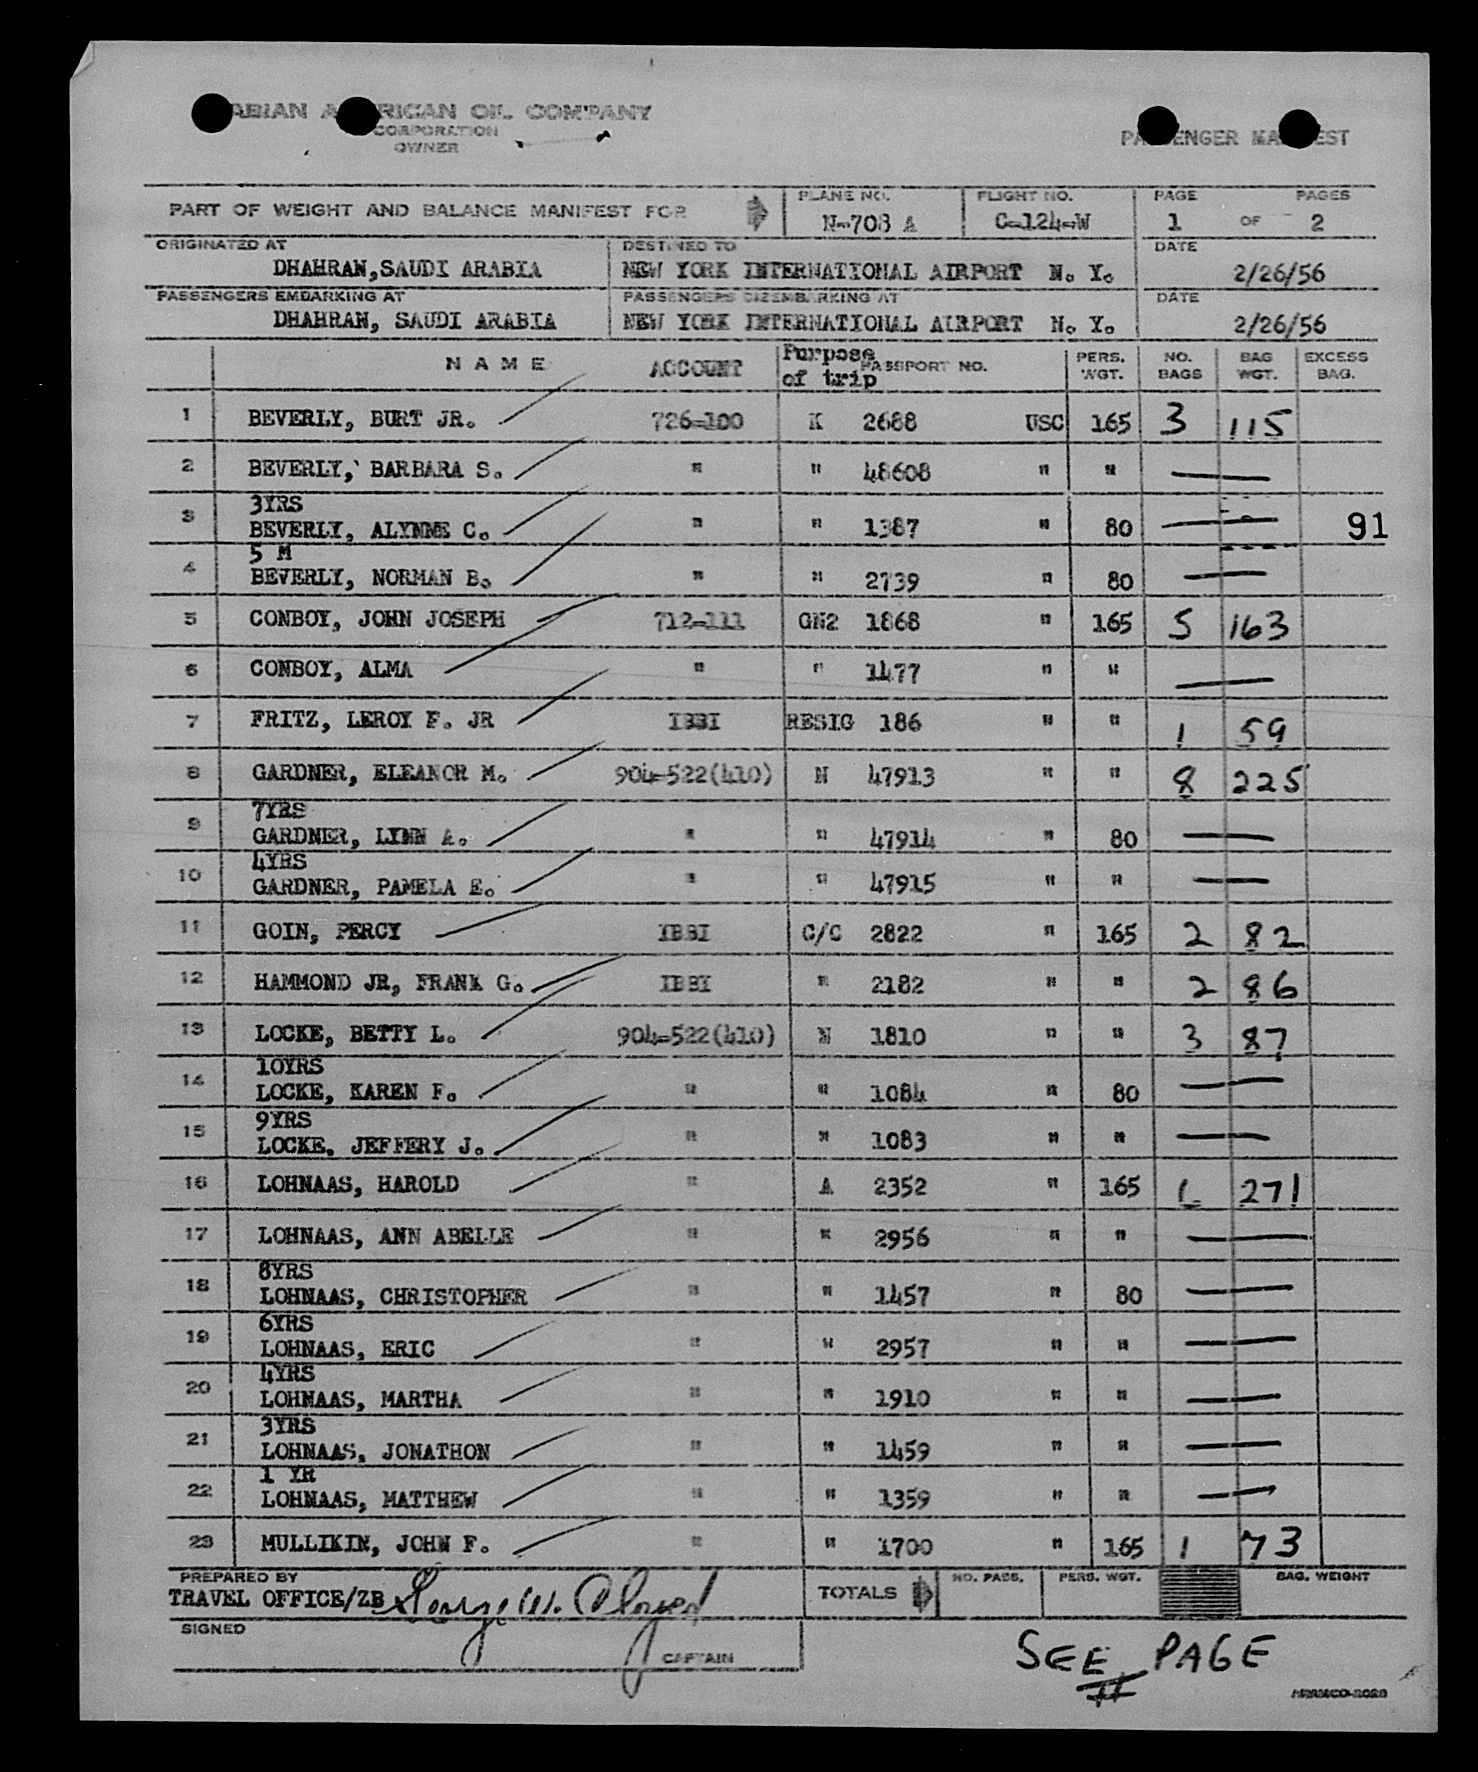 ABIAN A RICAN OIL COMPANY
CORPORATION
OWNER
PA ENGER MA EST
PART OF WEIGHT AND BALANCE MANIFEST FOR
PLANE NO. N-708 A
FLIGHT NO. C-124-W
PAGE 1 OF PAGES 2
ORIGINATED AT DHAHRAN,SAUDI ARABIA
DESTINED TO NEW YORK INTERNATIONAL AIRPORT N. Y.
DATE 2/26/56
PASSENGERS EMBARKING AT DHAHRAN, SAUDI ARABIA
PASSENGERS DISEMBARKING AT NEW YORK INTERNATIONAL AIRPORT N. Y.
DATE 2/26/56
NAME ACCOUNT Purpose of trip PASSPORT NO. PERS. WGT. NO. BAGS BAG WGT. EXCESS BAG.
1 BEVERLY, BURT JR. 726-100 K 2688 USC 165 3 115
2 BEVERLY, BARBARA S. " " 48608 " " —
3YRS
3 BEVERLY, ALYNME C. " " 1387 " 80 — 91
5 M
4 BEVERLY, NORMAN B. " " 2739 " 80 —
5 CONBOY, JOHN JOSEPH 712-111 GN2 1868 " 165 5 163
6 CONBOY, ALMA " " 1477 " " —
7 FRITZ, LEROY F. JR IBBI RESIG 186 " " 1 59
8 GARDNER, ELEANOR M. 904-522(410) N 47913 " " 8 225
7YRS
9 GARDNER, LYNN A. " " 47914 " 80 —
4YRS
10 GARDNER, PAMELA E. " " 47915 " " —
11 GOIN, PERCY IBBI C/C 2822 " 165 2 82
12 HAMMOND JR, FRANK G. IBBI " 2182 " " 2 86
13 LOCKE, BETTY L. 904-522(410) N 1810 " " 3 87
10YRS
14 LOCKE, KAREN F. " " 1084 " 80 —
9YRS
15 LOCKE, JEFFERY J. " " 1083 " " —
16 LOHNAAS, HAROLD " A 2352 " 165 271
17 LOHNAAS, ANN ABELLE " " 2956 " " —
8YRS
18 LOHNAAS, CHRISTOPHER " " 1457 " 80 —
6YRS
19 LOHNAAS, ERIC " " 2957 " " —
4YRS
20 LOHNAAS, MARTHA " " 1910 " " —
3YRS
21 LOHNAAS, JONATHON " " 1459 " " —
1 YR
22 LOHNAAS, MATTHEW " " 1359 " " —
23 MULLIKIN, JOHN F. " " 1700 " 165 1 73
PREPARED BY
TRAVEL OFFICE/ZB George W.
TOTALS NO. PASS. PERS. WGT. BAG. WEIGHT
SIGNED
CAPTAIN
SEE PAGE
II
ARAMCO-2028